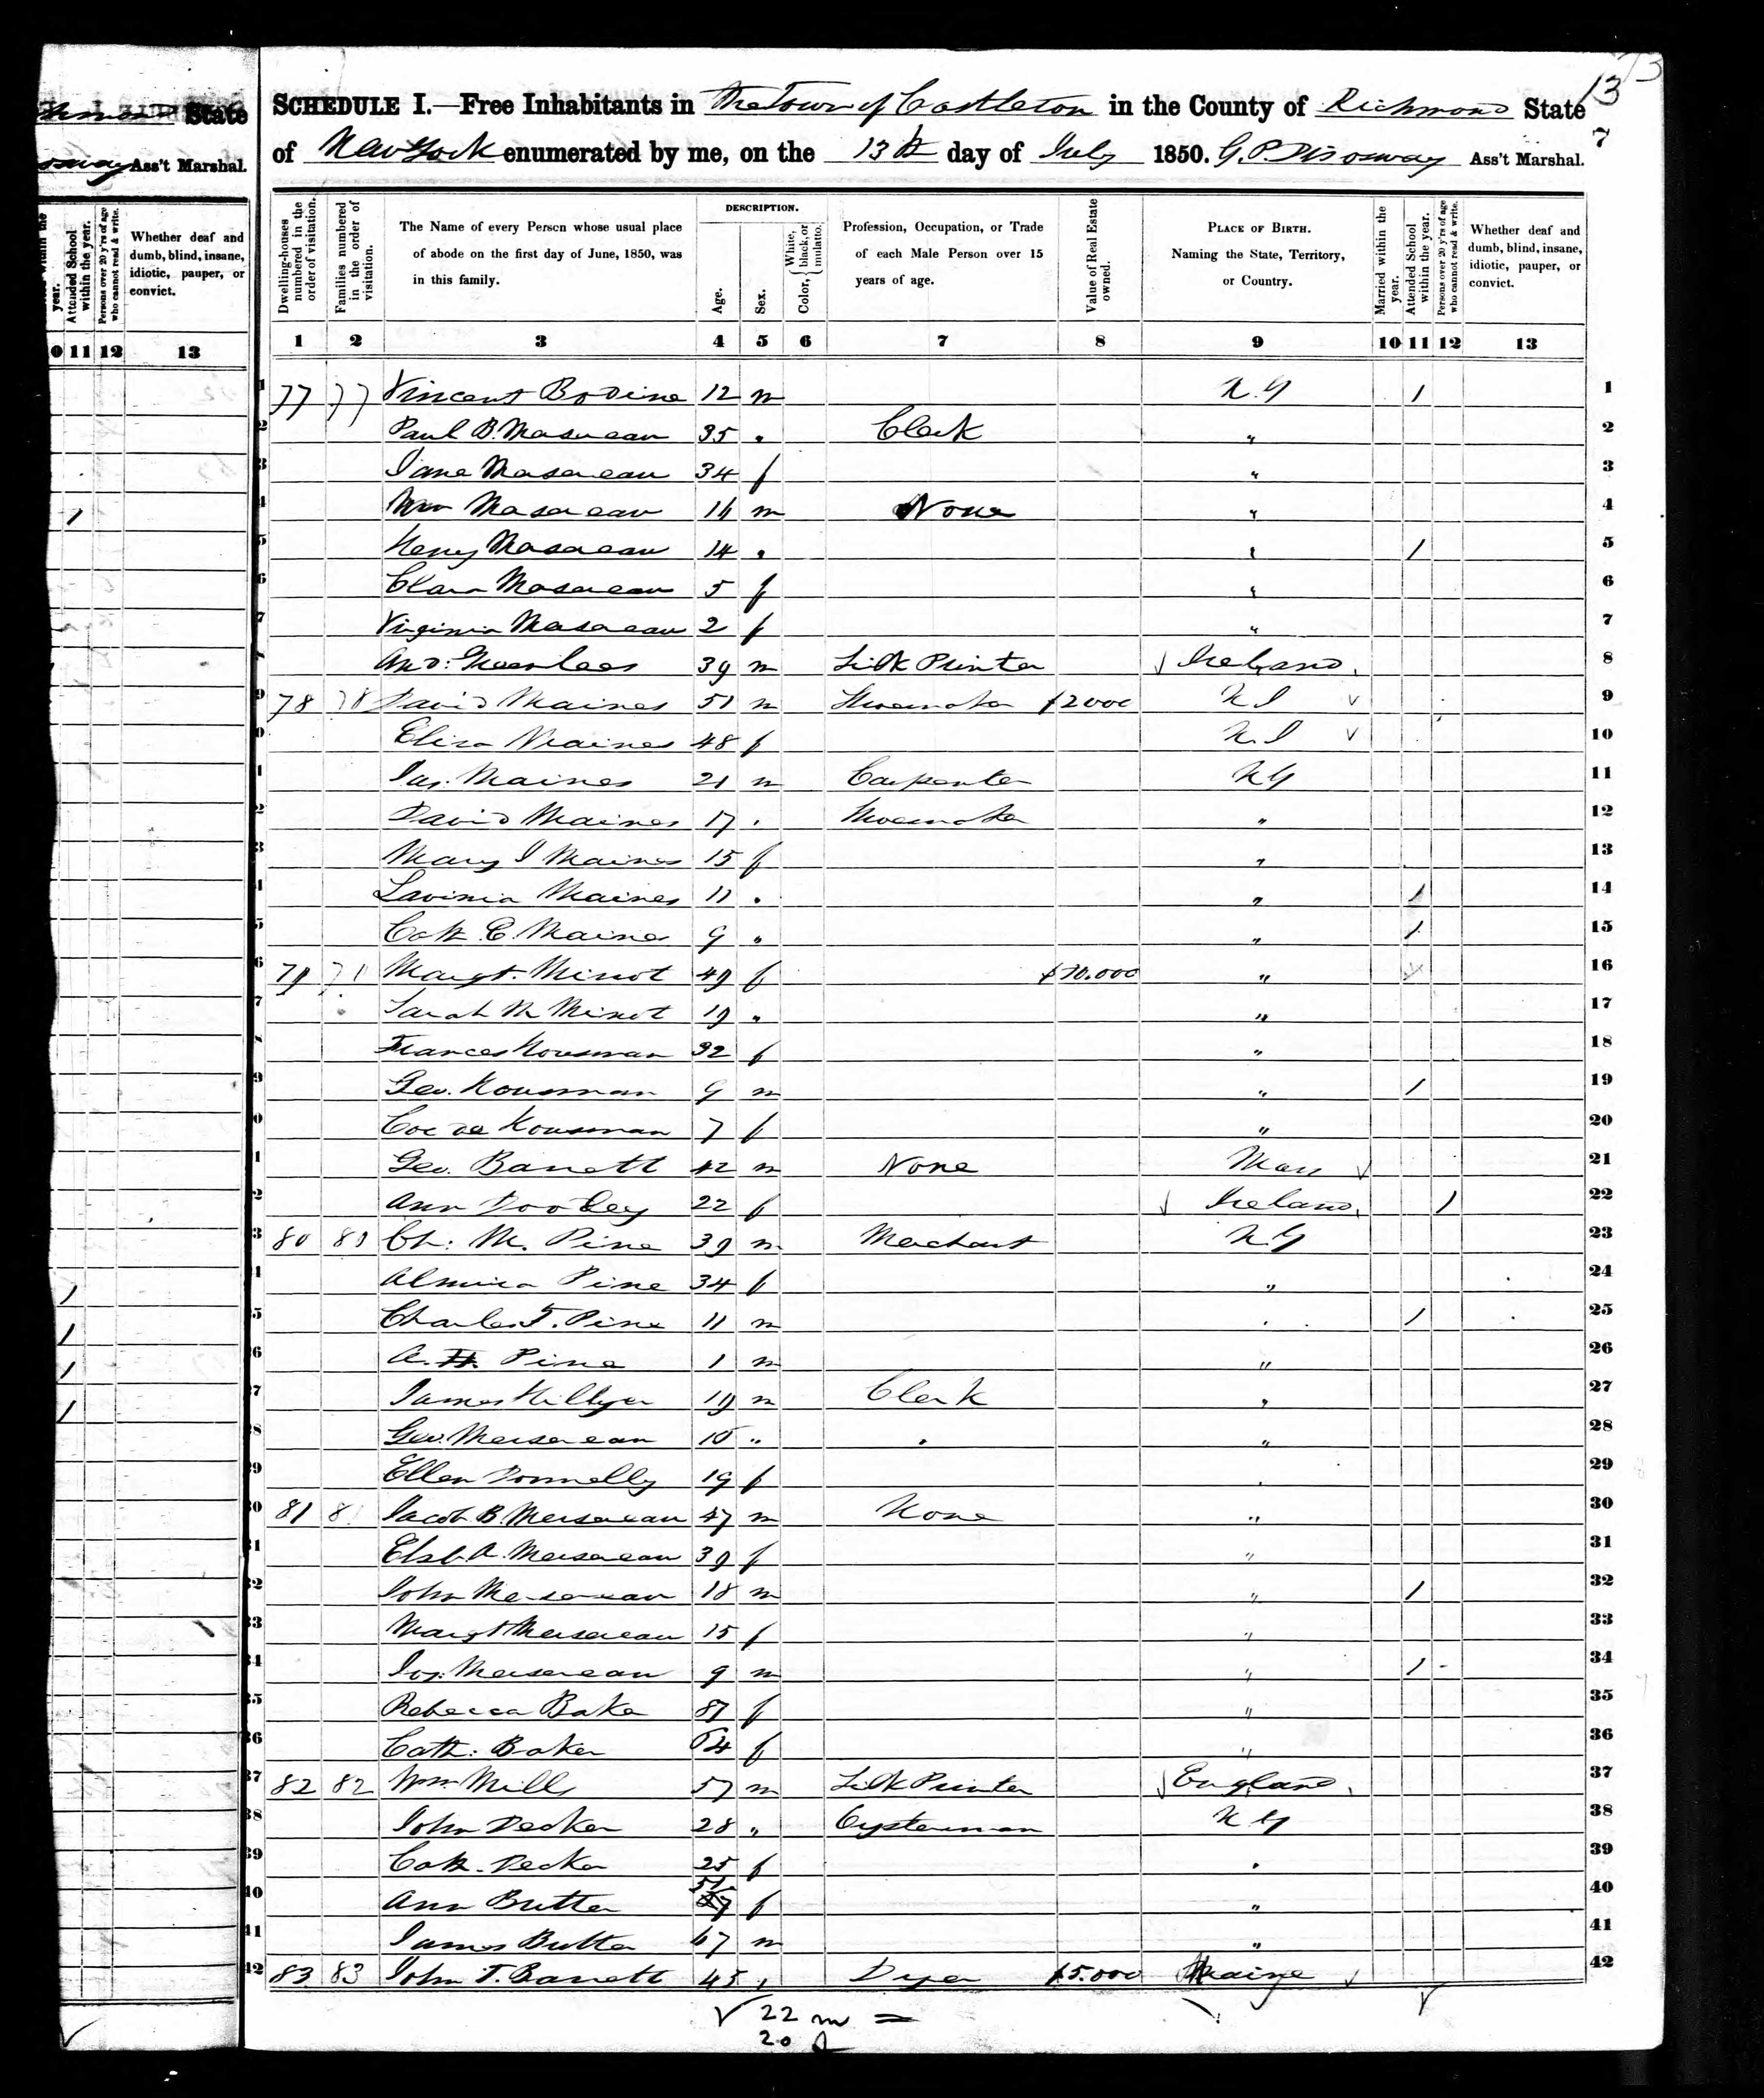 13 73
SCHEDULE I.—Free Inhabitants in the Town of Castleton in the County of Richmond State
7
of New York enumerated by me, on the 13th day of July 1850. G. P. Disosway Ass't Marshal.
State
Ass't Marshal.
Attended School within the year.
Persons over 20 y'rs of age who cannot read & write.
Whether deaf and dumb, blind, insane, idiotic, pauper, or convict.
11 12 13
Dwelling-houses numbered in the order of visitation.
Families numbered in the order of visitation.
The Name of every Person whose usual place of abode on the first day of June, 1850, was in this family.
DESCRIPTION.
Age.
Sex.
Color, { White, black, or mulatto.
Profession, Occupation, or Trade of each Male Person over 15 years of age.
Value of Real Estate owned.
PLACE OF BIRTH. Naming the State, Territory, or Country.
Married within the year.
Attended School within the year.
Persons over 20 y'rs of age who cannot read & write.
Whether deaf and dumb, blind, insane, idiotic, pauper, or convict.
1 2 3 4 5 6 7 8 9 10 11 12 13
77 77 Vincent Bodine 12 m N.Y 1 1
Paul B. Masereau 35 " Clerk " 2
Jane Masereau 34 f " 3
Wm Masereau 16 m None " 4
Henry Masereau 14 " " 1 5
Clara Masereau 5 f " 6
Virginia Masereau 2 f " 7
And: Greenlees 39 m Silk Printer Ireland 8
78 78 David Maines 51 m Shoemaker $2000 N J 9
Eliza Maines 48 f N. J 10
Jas. Maines 21 m Carpenter N Y 11
David Maines 17 " Shoemaker " 12
Mary J Maines 15 f " 13
Lavinia Maines 11 " " 1 14
Cath C. Maines 9 " " 1 15
79 79 Margt. Minot 49 f $70.000 " 16
Sarah M Minot 19 " " 17
Frances Housman 32 f " 18
Geo. Housman 9 m " 1 19
Housman 7 f " 20
Geo. Barrett 42 m None Mass 21
Ann Dooley 22 f Ireland 1 22
80 80 Ch: M. Pine 39 m Merchant N Y 23
Almira Pine 34 f " 24
Charles F. Pine 11 m " 1 25
A. H. Pine 1 m " 26
James Hillyer 19 m Clerk " 27
Geo. Mersereau 15 " " " 28
Ellen Donnelly 19 f " 29
81 81 Jacob B. Mersereau 47 m None " 30
Elsb. A. Mersereau 39 f " 31
John Mersereau 18 m " 1 32
Margt Mersereau 15 f " 33
Jos. Mersereau 9 m " 1 34
Rebecca Baker 87 f " 35
Cath: Baker 64 f " 36
82 82 Wm. Mills 57 m Silk Printer England 37
John Decker 28 " Oysterman N Y 38
Cath. Decker 25 f " 39
Ann Britton f " 40
James Britton 67 m " 41
83 83 John T. Barrett 45 " Dyer $5.000 Maine 42
22 m =
20 f